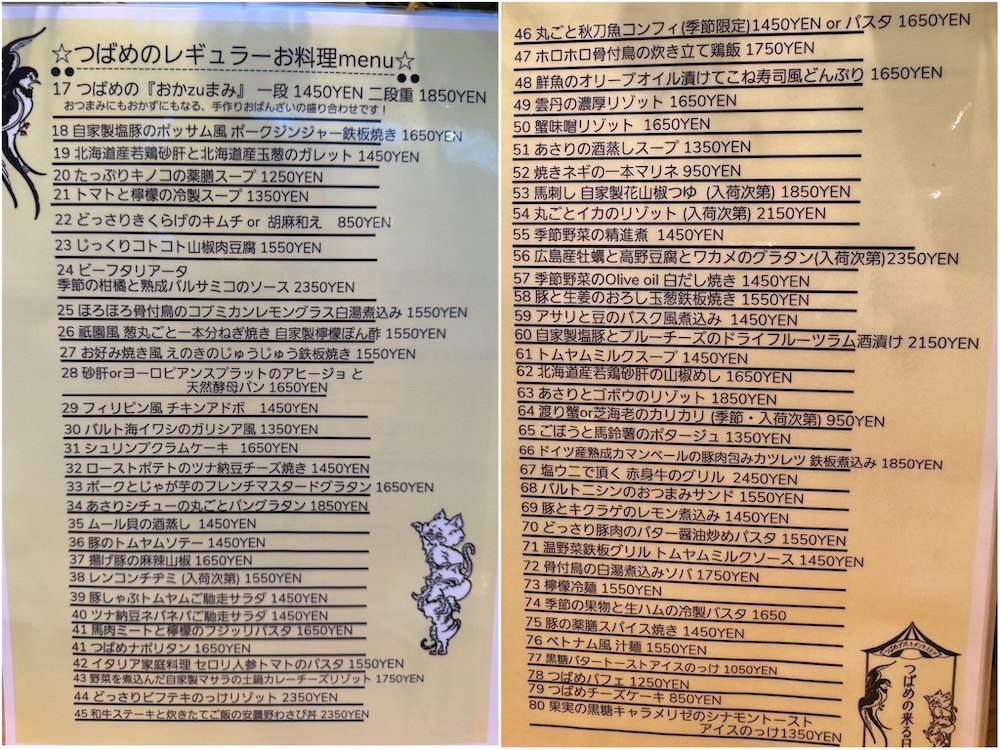 ☆つばめのレギュラーお料理menu☆
17 つばめの『おかzuまみ』 一段 1450YEN 二段重 1850YEN
おつまみにもおかずにもなる、手作りおばんざいの盛り合わせです!
18 自家製塩豚のポッサム風 ポークジンジャー鉄板焼き 1650YEN
19 北海道産若鶏砂肝と北海道産玉葱のガレット 1450YEN
20 たっぷりキノコの薬膳スープ 1250YEN
21 トマトと檸檬の冷製スープ 1350YEN
22 どっさりきくらげのキムチ or 胡麻和え 850YEN
23 じっくりコトコト山椒肉豆腐 1550YEN
24 ビーフタリアータ
季節の柑橘と熟成バルサミコのソース 2350YEN
25 ほろほろ骨付鳥のコブミカンレモングラス白湯煮込み 1550YEN
26 祇園風 葱丸ごと一本分ねぎ焼き 自家製檸檬ぽん酢 1550YEN
27 お好み焼き風 えのきのじゅうじゅう鉄板焼き 1550YEN
28 砂肝orヨーロピアンスプラットのアヒージョ と
天然酵母パン 1650YEN
29 フィリピン風 チキンアドボ 1450YEN
30 バルト海イワシのガリシア風 1350YEN
31 シュリンプクラムケーキ 1650YEN
32 ローストポテトのツナ納豆チーズ焼き 1450YEN
33 ポークとじゃが芋のフレンチマスタードグラタン 1650YEN
34 あさりシチューの丸ごとパングラタン 1850YEN
35 ムール貝の酒蒸し 1450YEN
36 豚のトムヤムソテー 1450YEN
37 揚げ豚の麻辣山椒 1650YEN
38 レンコンチヂミ (入荷次第) 1550YEN
39 豚しゃぶトムヤムご馳走サラダ 1450YEN
40 ツナ納豆ネバネバご馳走サラダ 1450YEN
41 馬肉ミートと檸檬のフジッリパスタ 1650YEN
41 つばめナポリタン 1650YEN
42 イタリア家庭料理 セロリ人参トマトのパスタ 1550YEN
43 野菜を煮込んだ自家製マサラの土鍋カレーチーズリゾット 1750YEN
44 どっさりビフテキのっけリゾット 2350YEN
45 和牛ステーキと炊きたてご飯の安曇野わさび丼 2350YEN
46 丸ごと秋刀魚コンフィ(季節限定)1450YEN or パスタ 1650YEN
47 ホロホロ骨付鳥の炊き立て鶏飯 1750YEN
48 鮮魚のオリーブオイル漬けてこね寿司風どんぶり 1650YEN
49 雲丹の濃厚リゾット 1650YEN
50 蟹味噌リゾット 1650YEN
51 あさりの酒蒸しスープ 1350YEN
52 焼きネギの一本マリネ 950YEN
53 馬刺し 自家製花山椒つゆ (入荷次第) 1850YEN
54 丸ごとイカのリゾット (入荷次第) 2150YEN
55 季節野菜の精進煮 1450YEN
56 広島産牡蠣と高野豆腐とワカメのグラタン(入荷次第)2350YEN
57 季節野菜のOlive oil 白だし焼き 1450YEN
58 豚と生姜のおろし玉葱鉄板焼き 1550YEN
59 アサリと豆のバスク風煮込み 1450YEN
60 自家製塩豚とブルーチーズのドライフルーツラム酒漬け 2150YEN
61 トムヤムミルクスープ 1450YEN
62 北海道産若鶏砂肝の山椒めし 1650YEN
63 あさりとゴボウのリゾット 1850YEN
64 渡り蟹or芝海老のカリカリ (季節・入荷次第) 950YEN
65 ごぼうと馬鈴薯のポタージュ 1350YEN
66 ドイツ産熟成カマンベールの豚肉包みカツレツ 鉄板煮込み 1850YEN
67 塩ウニで頂く 赤身牛のグリル 2450YEN
68 バルトニシンのおつまみサンド 1550YEN
69 豚とキクラゲのレモン煮込み 1450YEN
70 どっさり豚肉のバター醤油炒めパスタ 1550YEN
71 温野菜鉄板グリル トムヤムミルクソース 1450YEN
72 骨付鳥の白湯煮込みソバ 1750YEN
73 檸檬冷麺 1550YEN
74 季節の果物と生ハムの冷製パスタ 1650
75 豚の薬膳スパイス焼き 1450YEN
76 ベトナム風 汁麺 1550YEN
77 黒糖バタートーストアイスのっけ 1050YEN
78 つばめパフェ 1250YEN
79 つばめチーズケーキ 850YEN
80 果実の黒糖キャラメリゼのシナモントースト
アイスのっけ1350YEN
つばめアパートメントストア
つばめの来る日